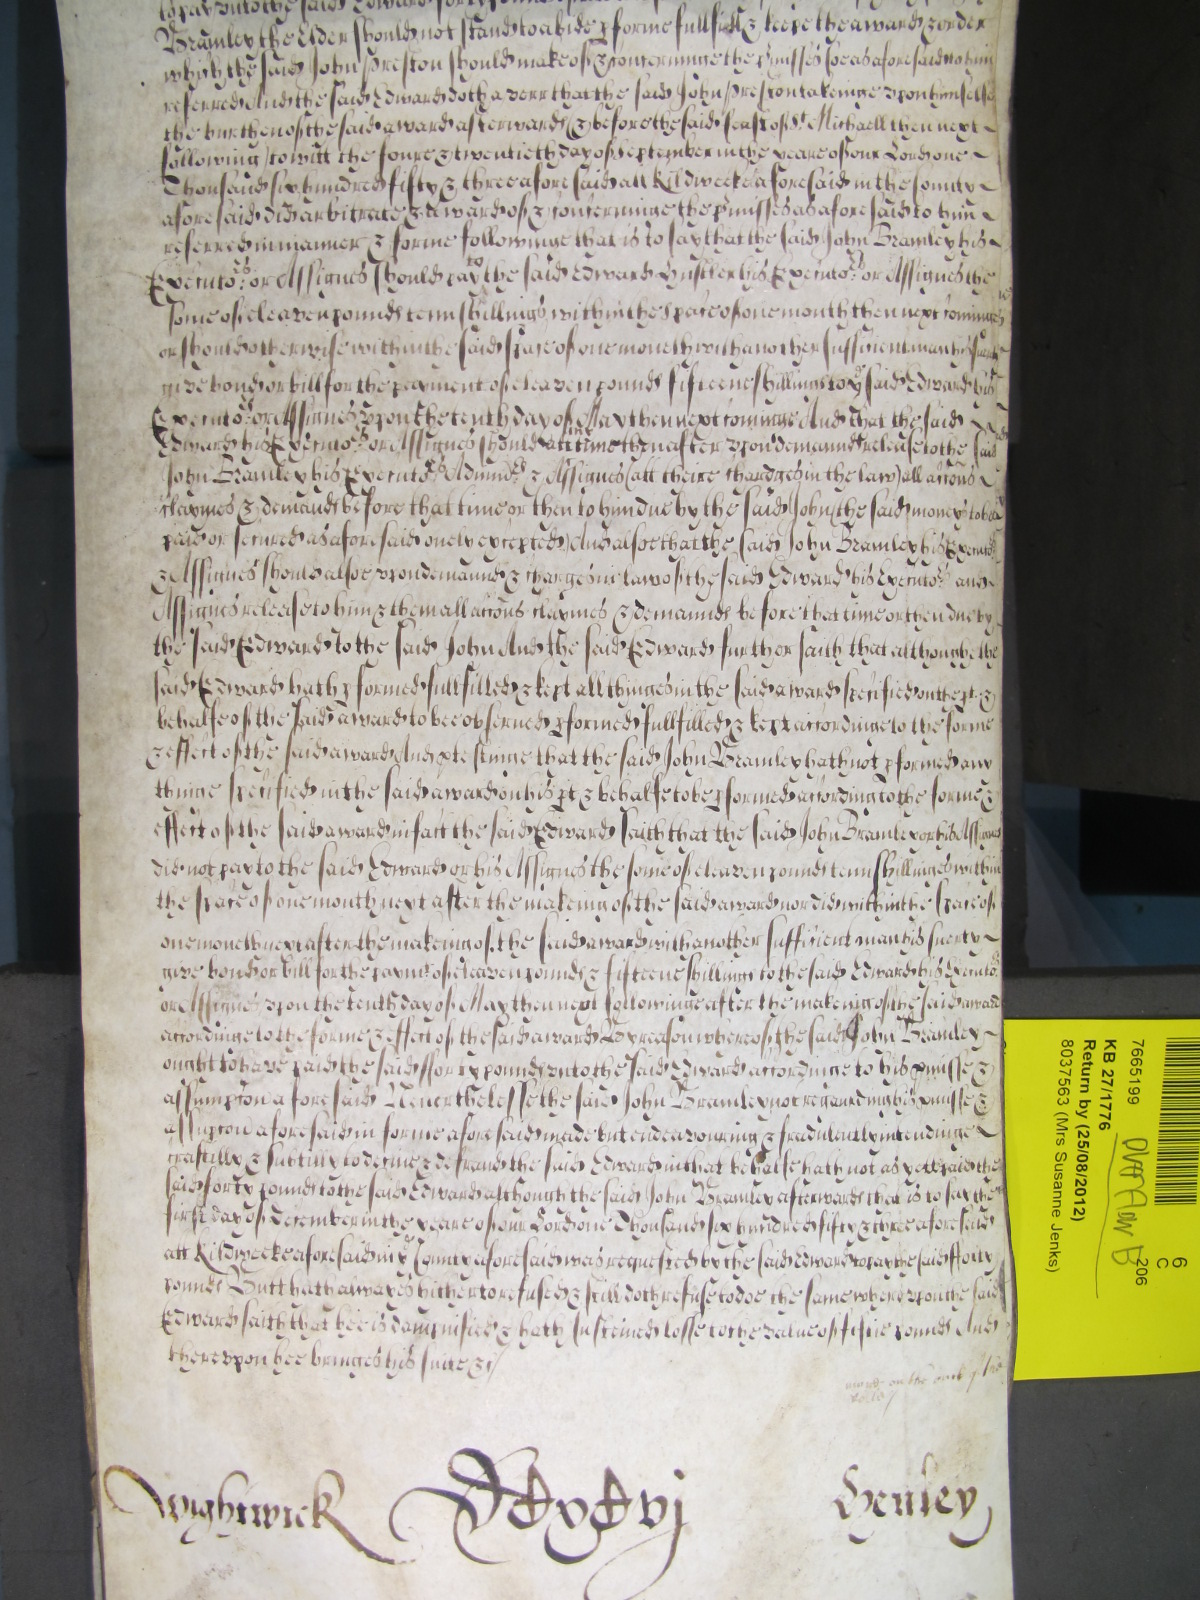 to pay unto the said Edward forty pounds
Bramley the Elder should not stand to abide pforme fullfill & keepe the award & order
which the said John Preston should make of & concerninge the pmisses soe as aforesaid to him
referred And the said Edward doth averr that the said John Preston takeinge upon himselfe
the burthen of the said award afterwards & before the said feast of St Michaell then next
followinge to witt the foure & twentieth day of September in the yeare of our Lord one
Thousand six hundred fifty & three aforesaid att Kildweeke aforesaid in the County
aforesaid did arbitrate & award of & concerninge the pmisses as aforesaid to him
referred in manner & forme followinge that is to say that the said John Bramley his
Executors or Assignes should pay to the said Edward his Executors or Assignes the
some of eleaven pounds tenn shillings within the space of one month then next cominge
or should otherwise within the said space of one moneth with another sufficient man his suerty
give bond or bill for the payment of eleaven pounds fifteene shillings to ye said Edward his
Executors or Assignes upon the tenth day of May then next cominge And that the said
Edward his Executors or Assignes should att anie time then after upon demaund release to the said
John Bramley his Executors Administrs & Assignes (att theire chardges in the law) all accons
claymes & demands before that time or then to him due by the said John (the said money to bee
paid or secured as aforesaid onely excepted) And alsoe that the said John Bramley his Executors
& Assignes should alsoe upon demaund & charges in law of the said Edward his Executors and
Assignes release to him & them all accons claymes & demaunds before that time or then due by
the said Edward to the said John And the said Edward further saith that althoughe the
said Edward hath pformed fullfilled & kept all thinges in the said award specified on the pt &
behalfe of the said award to bee observed pformed fullfilled & kept accordinge to the forme
& effect of the said award And ptestinge that the said John Bramley hath not pformed any
thinge specified in the said award on his pt & behalfe to be pformed according to the forme &
effect of the said award in fact the said Edward saith that the said John Bramley or his Assignes
did not pay to the said Edward or his Assignes the some of eleaven pounds tenn shillinges within
the space of one month next after the makeing of the said award nor did within the space of
one moneth next after the makeing of the said award with another sufficient man his suerty
give bond or bill for the paymt of eleaven pounds & fifteene shillings to the said Edward his Executors
or Assignes upon the tenth day of May then next followinge after the makeing of the said award
accordinge to the forme & effect of the said award By reason whereof the said John Bramley
ought to have paid the said fforty pounds unto the said Edward accordinge to his pmisse &
assumpcon aforesaid Neverthelesse the said John Bramley not regarding his pmisse &
assumpcon aforesaid in forme aforesaid made but endeavouring & fradulently intendinge
craftilly & subtilly to deceive & defraud the said Edward in that behalfe hath not as yett paid the
said forty pounds to the said Edward although the said John Bramley afterwards that is to say the
first day of December in the yeare of our Lord one Thousand six hundred fifty & three aforesaid
att Kildweeke aforesaid in ye County aforesaid was requested by the said Edward to pay the said fforty
pounds Butt hath alwayes hitherto refused & still doth refuse to doe the same whereupon the said
Edward saith that hee is damnified & hath susteined losse to the value of fiftie pounds And
thereupon hee bringes his suite &c
more on the back of the
rolle
Wightwick
Henley
7665199
KB 27/1776
Return by (25/08/2012)
8037563 (Mrs Susanne Jenks)
6
C
206